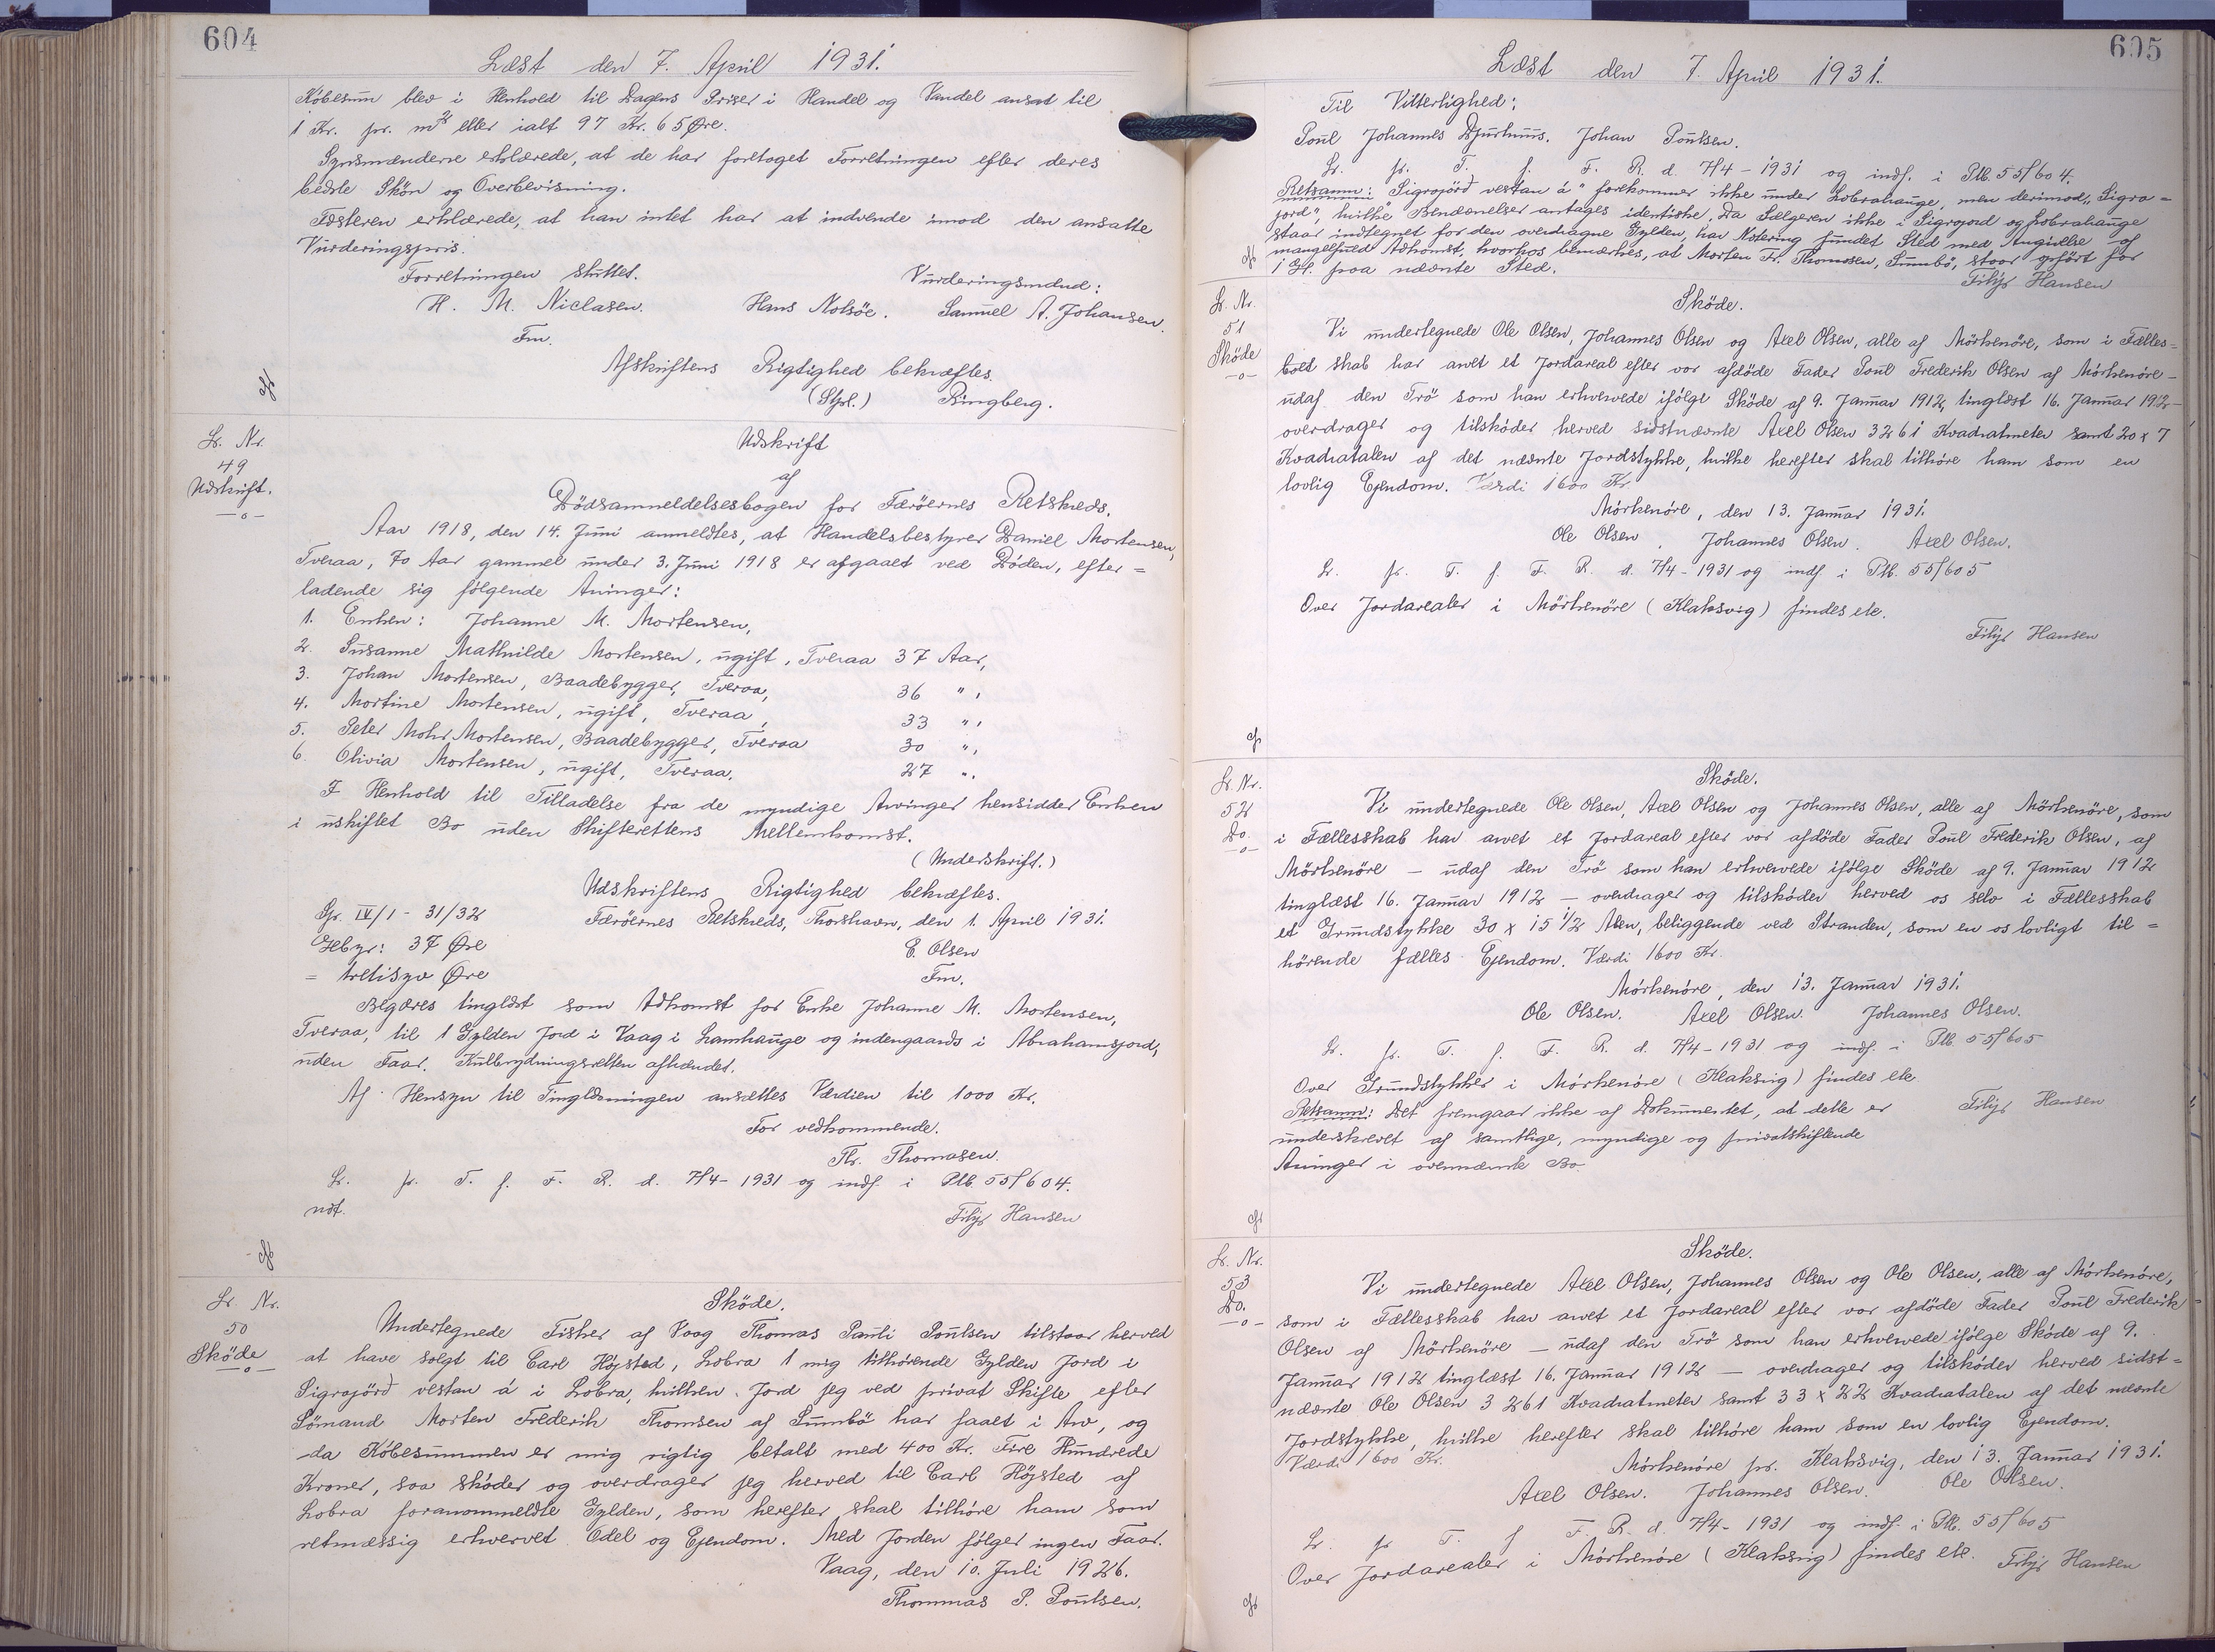 604
Læst den 7. April 1931.
Köbesum blev i Henhold til Dagens Priser i Handel og Vandel ansat til
1 Kr. pr. m² eller ialt 97 Kr. 65 Øre.
Synsmændene erklærede, at de har foretaget Forretningen efter deres
bedste Skön og Overbevisning.
Fæsteren erklærede, at han intet har at indvende imod den ansatte
Vurderingspris.
Forretningen sluttet.
Vurderingsmænd:
H. M. Niclasen. Hans Nolsöe. Samuel A. Johansen.
Fm.
Afskriftens Rigtighed bekræftes.
(Stpl.) Ringberg.
Lb. Nr.
49
Udskrift.
Udskrift
af
Dödsanmeldelsesbogen for Færöernes Retskreds.
Aar 1918, den 14. Juni anmeldtes, at Handelsbestyrer Daniel Mortensen,
Tveraa, 70 Aar gammel under 3. Juni 1918 er afgaaet ved Döden, efter=
ladende sig fölgende Arvinger:
1. Enken: Johanne M. Mortensen,
2. Susanne Mathilde Mortensen, ugift, Tveraa 37 Aar,
3. Johan Mortensen, Baadebygger, Tveraa, 36 " ,
4. Mortine Mortensen, ugift, Tveraa, 33 " ,
5. Peter Mohr Mortensen, Baadebygger, Tveraa 30 " ,
6. Olivia Mortensen, ugift, Tveraa. 27 " .
I Henhold til Tilladelse fra de myndige Arvinger hensidder Enken
i uskiftet Bo uden Skifterettens Mellemkomst.
(Underskrift.)
Udskriftens Rigtighed bekræftes.
Gr. IV/1 - 31/32 Færöernes Retskreds, Thorshavn, den 1. April 1931.
Gebyr: 37 Øre E. Olsen
= tretisyv Øre Fm.
Begæres tinglæst som Adkomst for Enke Johanne M. Mortensen,
Tveraa, til 1 Gylden Jord i Vaag i Lamhauge og indengaards i Abrahamsjord,
uden Faar. Kulbrydningsretten afhændet.
Af Hensyn til Tinglæsningen ansættes Værdien til 1000 Kr.
For vedkommende.
Th. Thomasen.
Lb. pr. T. f. F. R. d. 7/4-1931 og indf. i Ptb. 55/604.
ndf.
Filip Hansen
Lb. Nr.
50
Sköde
Sköde.
Undertegnede Fisker af Vaag Thomas Pauli Poulsen tilstaar herved
at have solgt til Carl Höjsted, Lobra 1 mig tilhörende Gylden Jord i
Sigrajörð vestan á i Lobra, hvilken Jord jeg ved privat Skifte efter
Sömand Morten Frederik Thomsen af Sumbö har faaet i Arv, og
da Köbesummen er mig rigtig betalt med 400 Kr. Fire Hundrede
Kroner, saa sköder og overdrager jeg herved til Carl Höjsted af
Lobra foranommeldte Gylden, som herefter skal tilhöre ham som
retmæssig erhvervet Odel og Ejendom. Med Jorden fölger ingen Faar.
Vaag, den 10. Juli 1926.
Thommas P. Poulsen.
605
Læst den 7. April 1931.
Til Vitterlighed:
Poul Johannes Djurhuus. Johan Poulsen.
Lb. pr. T. f. F. R. d. 7/4-1931 og indf. i Ptb. 55/604.
Retsanm: Sigrajörð vestan á " forekommer ikke under Lobrahauge, men derimod "Sigra=
jord", hvilke Benævnelser antages identiske. Da Sælgeren ikke i Sigrajord og Lobrahauge
staar indtegnet for den overdragne Gylden, har Notering fundet Sted med Angivelse af
mangelfuld Adkomst, hvorhos bemærkes, at Morten Fr. Thomasen, Sumbö, staar opfört for
1 Gl. paa nævnte Sted.
Filip Hansen
Lb. Nr.
51
Sköde
Sköde.
Vi undertegnede Ole Olsen, Johannes Olsen og Axel Olsen, alle af Mörkenöre, som i Fælles=
skab har arvet et Jordareal efter vor afdöde Fader Poul Frederik Olsen af Mörkenöre -
udaf den Trö som han erhvervede ifölge Sköde af 9. Januar 1912, tinglæst 16. Januar 1912 -
overdrager og tilsköder herved sidstnævnte Axel Olsen 3261 Kvadratmeter samt 20 x 7
Kvadratalen af det nævnte Jordstykke, hvilke herefter skal tilhöre ham som en
lovlig Ejendom. Værdi 1600 Kr
Mörkenöre, den 13. Januar 1931.
Ole Olsen. Johannes Olsen. Axel Olsen.
Lb. pr. T. f. F. R. d. 7/4-1931 og indf. i Ptb. 55/605
Over Jordarealer i Mörkenöre (Klaksvig) findes etc.
Filip Hansen
Lb. Nr.
52
Do.
Sköde.
Vi undertegnede Ole Olsen, Axel Olsen og Johannes Olsen, alle af Mörkenöre, som
i Fællesskab har arvet et Jordareal efter vor afdöde Fader Poul Frederik Olsen, af
Mörkenöre - udaf den Trö som han erhvervede ifölge Sköde af 9. Januar 1912
tinglæst 16. Januar 1912 - overdrager og tilsköder herved os selv i Fællesskab
et Grundstykke 30 x 15 1/2 Alen, beliggende ved Stranden, som en os lovligt til=
hörende fælles Ejendom. Værdi 1600 Kr.
Mörkenöre, den 13. Januar 1931.
Ole Olsen. Axel Olsen. Johannes Olsen.
Lb. pr. T. f. F. R. d. 7/4-1931 og indf. i Ptb. 55/605
Over Grundstykker i Mörkenöre (Klaksvig) findes etc
Retsanm: Det fremgaar ikke af Dokumentet, at dette er Filip Hansen
underskrevet af samtlige, myndige og privatskiftende
Arvinger i ovennævnte Bo.
Lb. Nr.
53
Do.
Sköde.
Vi undertegnede Axel Olsen, Johannes Olsen og Ole Olsen, alle af Mörkenöre,
som i Fællesskab har arvet et Jordareal efter vor afdöde Fader Poul Frederik
Olsen af Mörkenöre - udaf den Trö som han erhvervede ifölge Sköde af 9.
Januar 1912 tinglæst 16. Januar 1912 - overdrager og tilsköder herved sidst=
nævnte Ole Olsen 3261 Kvadratmeter samt 33 x 22 Kvadratalen af det nævnte
Jordstykke, hvilke herefter skal tilhöre ham som en lovlig Ejendom.
Værdi 1600 Kr.
Mörkenöre pr. Klaksvig, den 13. Januar 1931.
Axel Olsen. Johannes Olsen. Ole Olsen.
Lb. pr T. f F. R. d. 7/4-1931 og indf. i Ptb. 55/605
Over Jordarealer i Mörkenöre (Klaksvig) findes etc. Filip Hansen